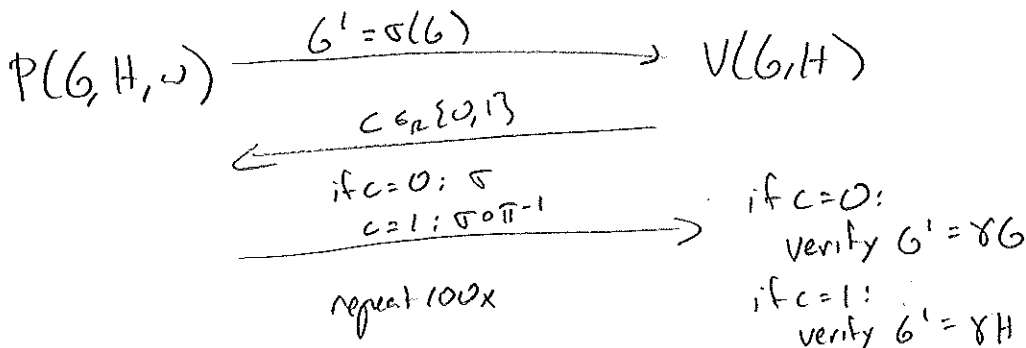 G' = σ(G)
P(G, H, ω)
V(G, H)
c ∈_R {0,1}
if c=0: σ
c=1: σ∘π⁻¹
repeat 100x
if c=0:
verify G' = γG
if c=1:
verify G' = γH